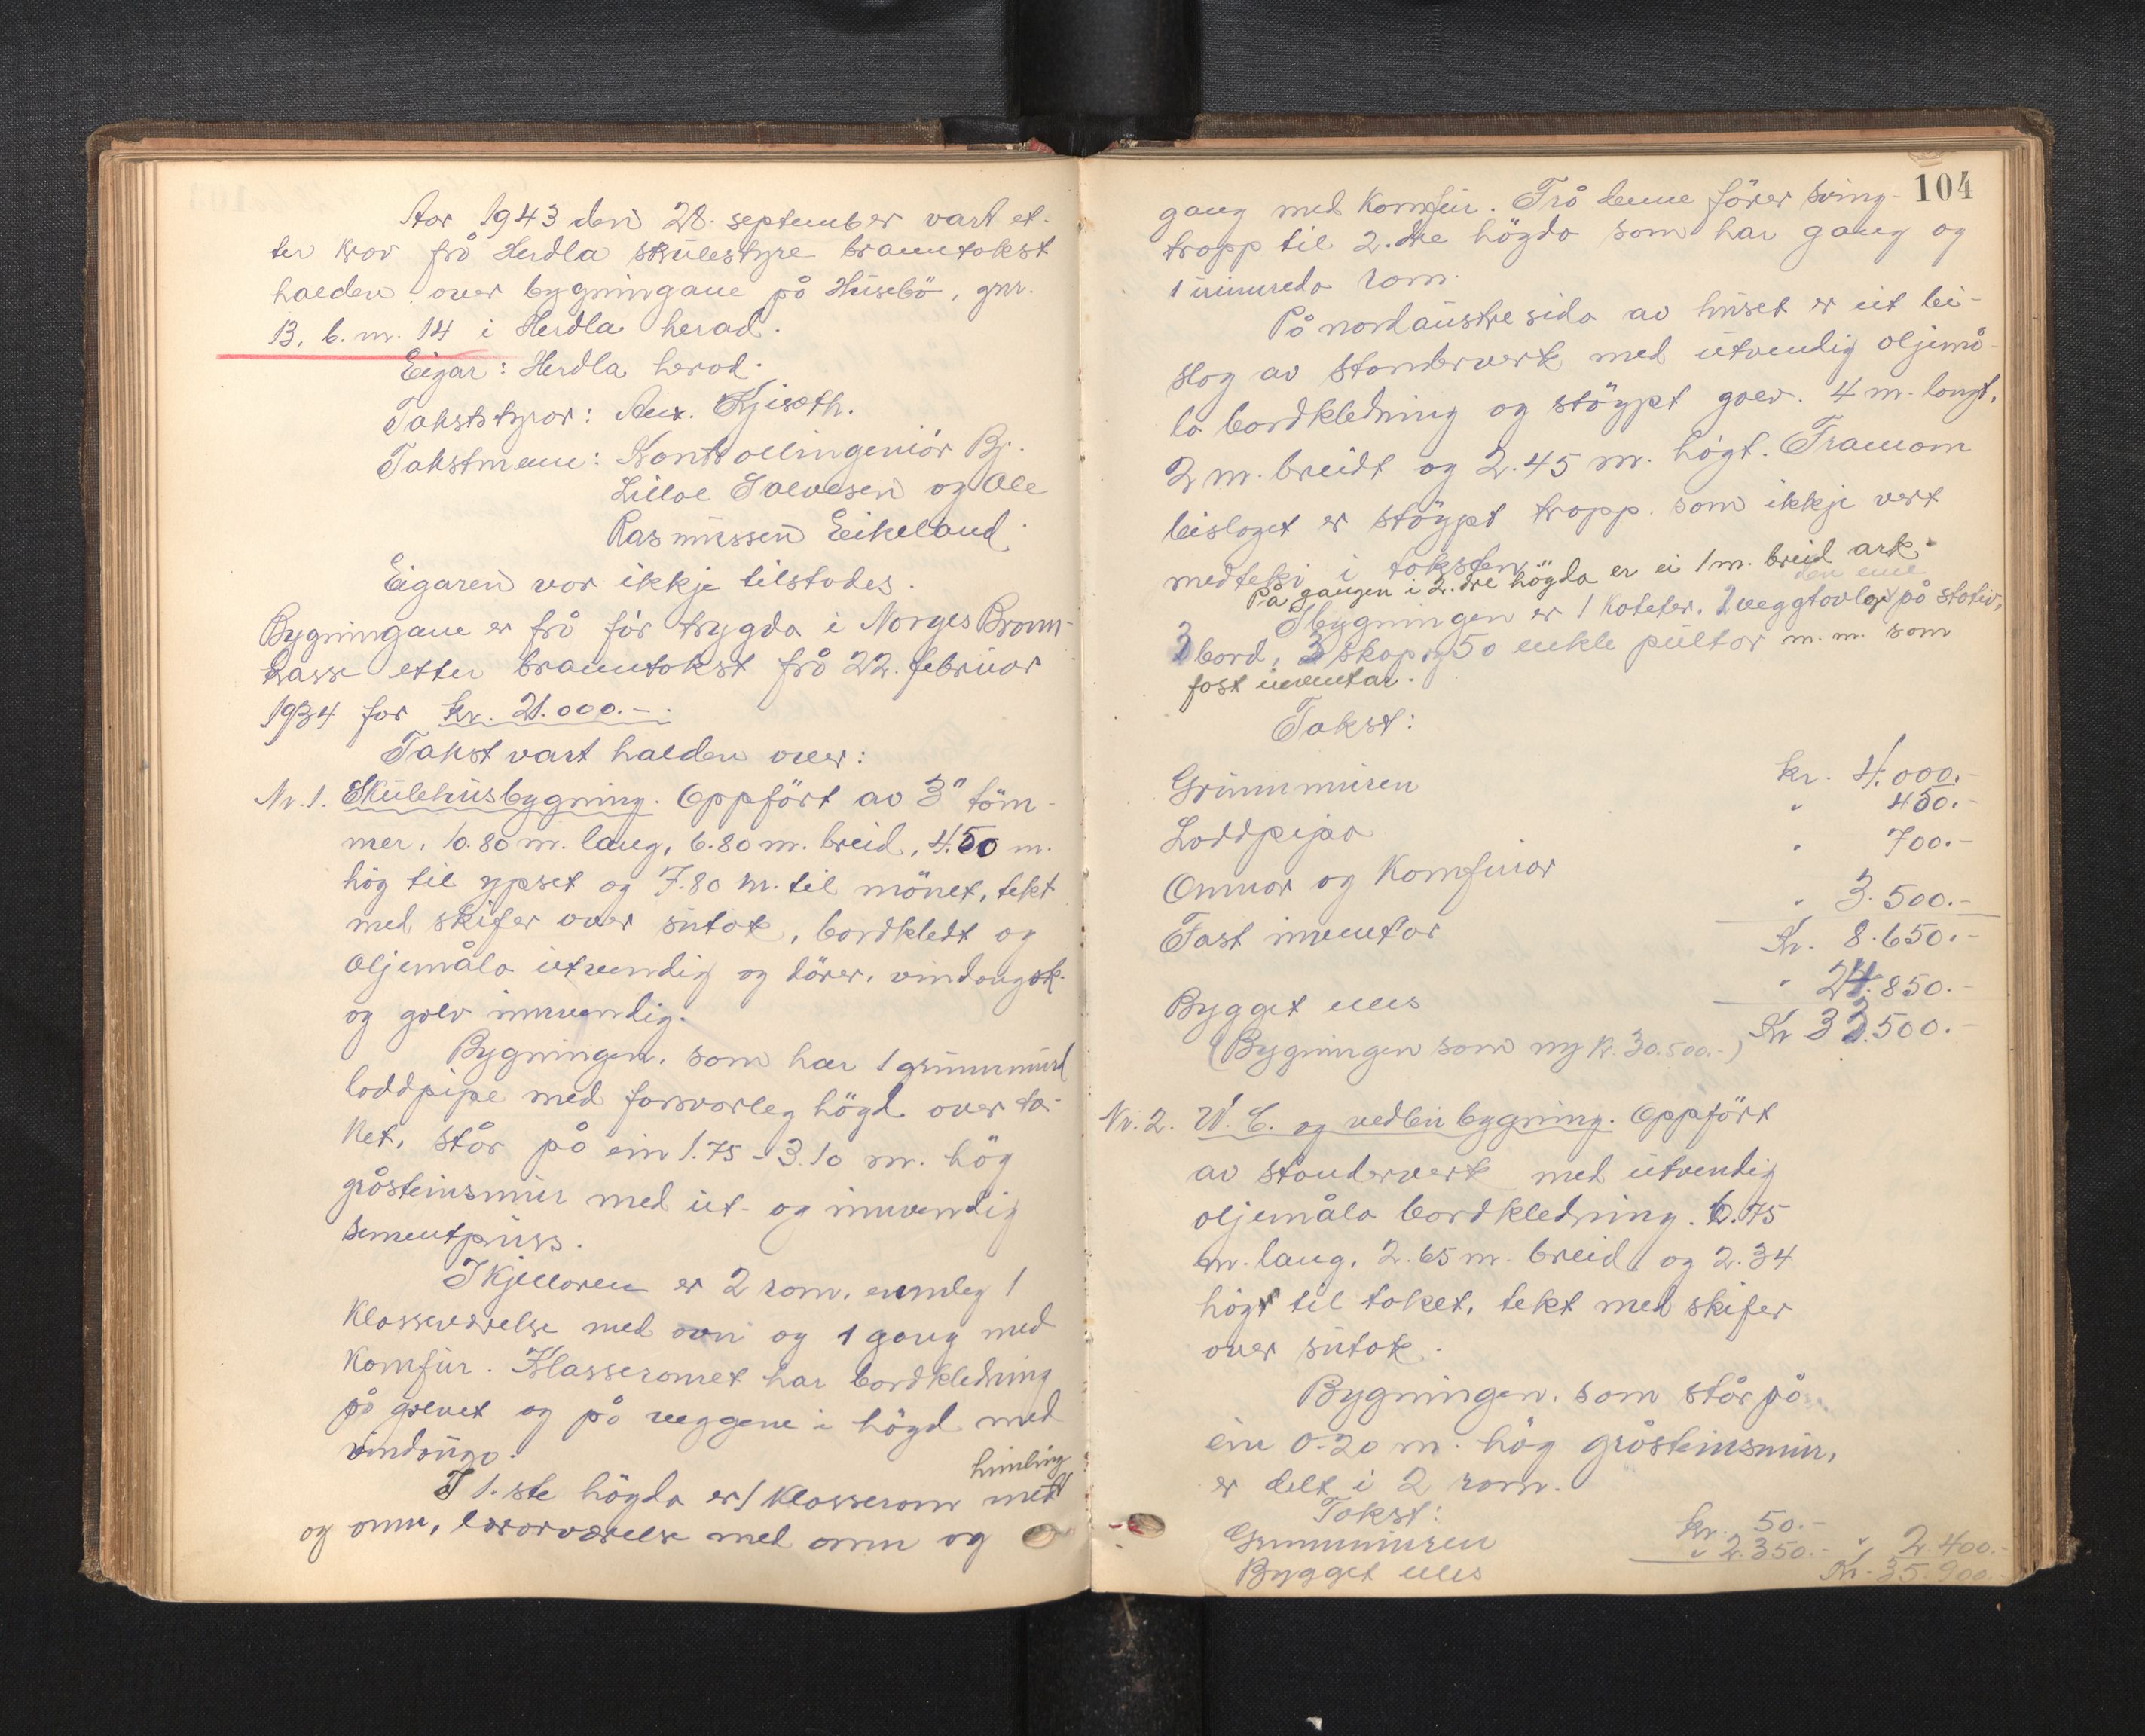 Aar 1943 den 28. september vart et-
ter krav frå Herdla skulestyre branntakst
halden over bygningane på Husebö, gnr.
13, b.nr. 14 i Herdla herad.
Eigar: Herdla herad.
Takststyrar:
Takstmenn: Kontrollingeniör Bj.
Lilloe Salvesen og Ole
Rasmussen Eikeland.
Eigaren var ikkje tilstades.
Bygningane er frå för trygda i Norges Brann-
kasse etter branntakst frå 22. februar
1934 for kr. 21.000.-.
Takst vart halden over:
Nr. 1. Skulehusbygning. Oppfört av 3" töm-
mer, 10.80 m. lang, 6.80 m. breid, 4.50 m.
hög til ypset og 7.80 m. til mönet, tekt
med skifer over sutak, bordkledt og
oljemåla utvendig og dörer, vindaugsk.
og golv innvendig.
Bygningen, som har 1 grunnmurd
loddpipe med forsvarleg högd over ta-
ket, står på ein 1.75 - 3.10 m. hög
gråsteinsmur med ut- og innvendig
sementpuss.
I kjellaren er 2 rom, nemleg 1
klasseværelse med ovn og 1 gang med
komfur. Klasseromet har bordkledning
på golvet og på veggene i högd med
vindaugo.
I 1.ste högda er 1 klasserom med himling
og omn, lærarværelse med omn og
104
gang med komfur. Frå denne förer sving-
trapp til 2.dre högda som har gang og
1 innreda rom.
På nordaustre sida av huset er eit bi-
slag av standerverk med utvendig oljemå-
la bordkledning og stöypt golv. 4 m. langt,
2 m. breidt og 2.45 m. högt. Framom
bislaget er stöypt trapp som ikkje vert
medteki i taksten.
På gangen i 2.dre högda er ei 1 m. breid ark.
I bygningen er 1 kateter, 2 veggtavlor den eine på stativ,
3 bord, 3 skap og 50 enkle pultar m.m. som
fast inventar.
Takst:
Grunnmuren kr. 4.000.-
Loddpipa " 450.-
Omnar og komfurar " 700.-
Fast inventar " 3.500.-
Kr. 8.650.-
Bygget elles " 24.850.-
(Bygningen som ny kr. 30.500.-) Kr 33.500.-
Nr. 2. W.C. og vedbu bygning. Oppfört
av standerverk med utvendig
oljemåla bordkledning. 6.75
m. lang, 2.65 m. breid og 2.34
högt til taket, tekt med skifer
over sutak.
Bygningen, som står på
ein 0.20 m. hög gråsteinsmur,
er delt i 2 rom.
Takst:
Grunnmuren kr. 50.-
Bygget elles " 2.350.- " 2.400.-
Kr. 35.900.-